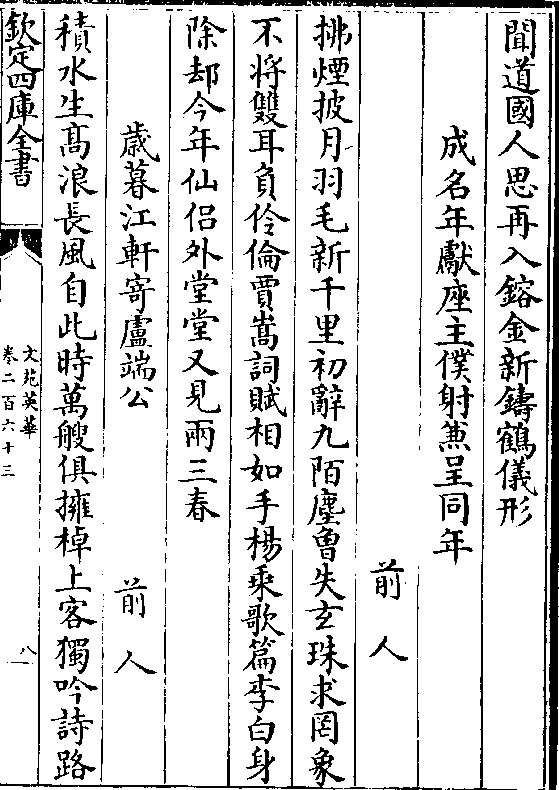 聞道國人思再入鎔金新鑄鶴儀形
成名年獻座主僕射兼呈同年
前人
拂煙披月羽毛新千里初辭九陌塵曾失玄珠求罔象
不將雙耳負伶倫賈嵩詞賦相如手楊乘歌篇李白身
除却今年仙侣外堂堂又見兩三春
歳暮江軒寄盧端公
前人
積水生髙浪長風自此時萬艘俱擁棹上客獨吟詩路
欽定四庫全書
文苑英華
卷二百六十三
八